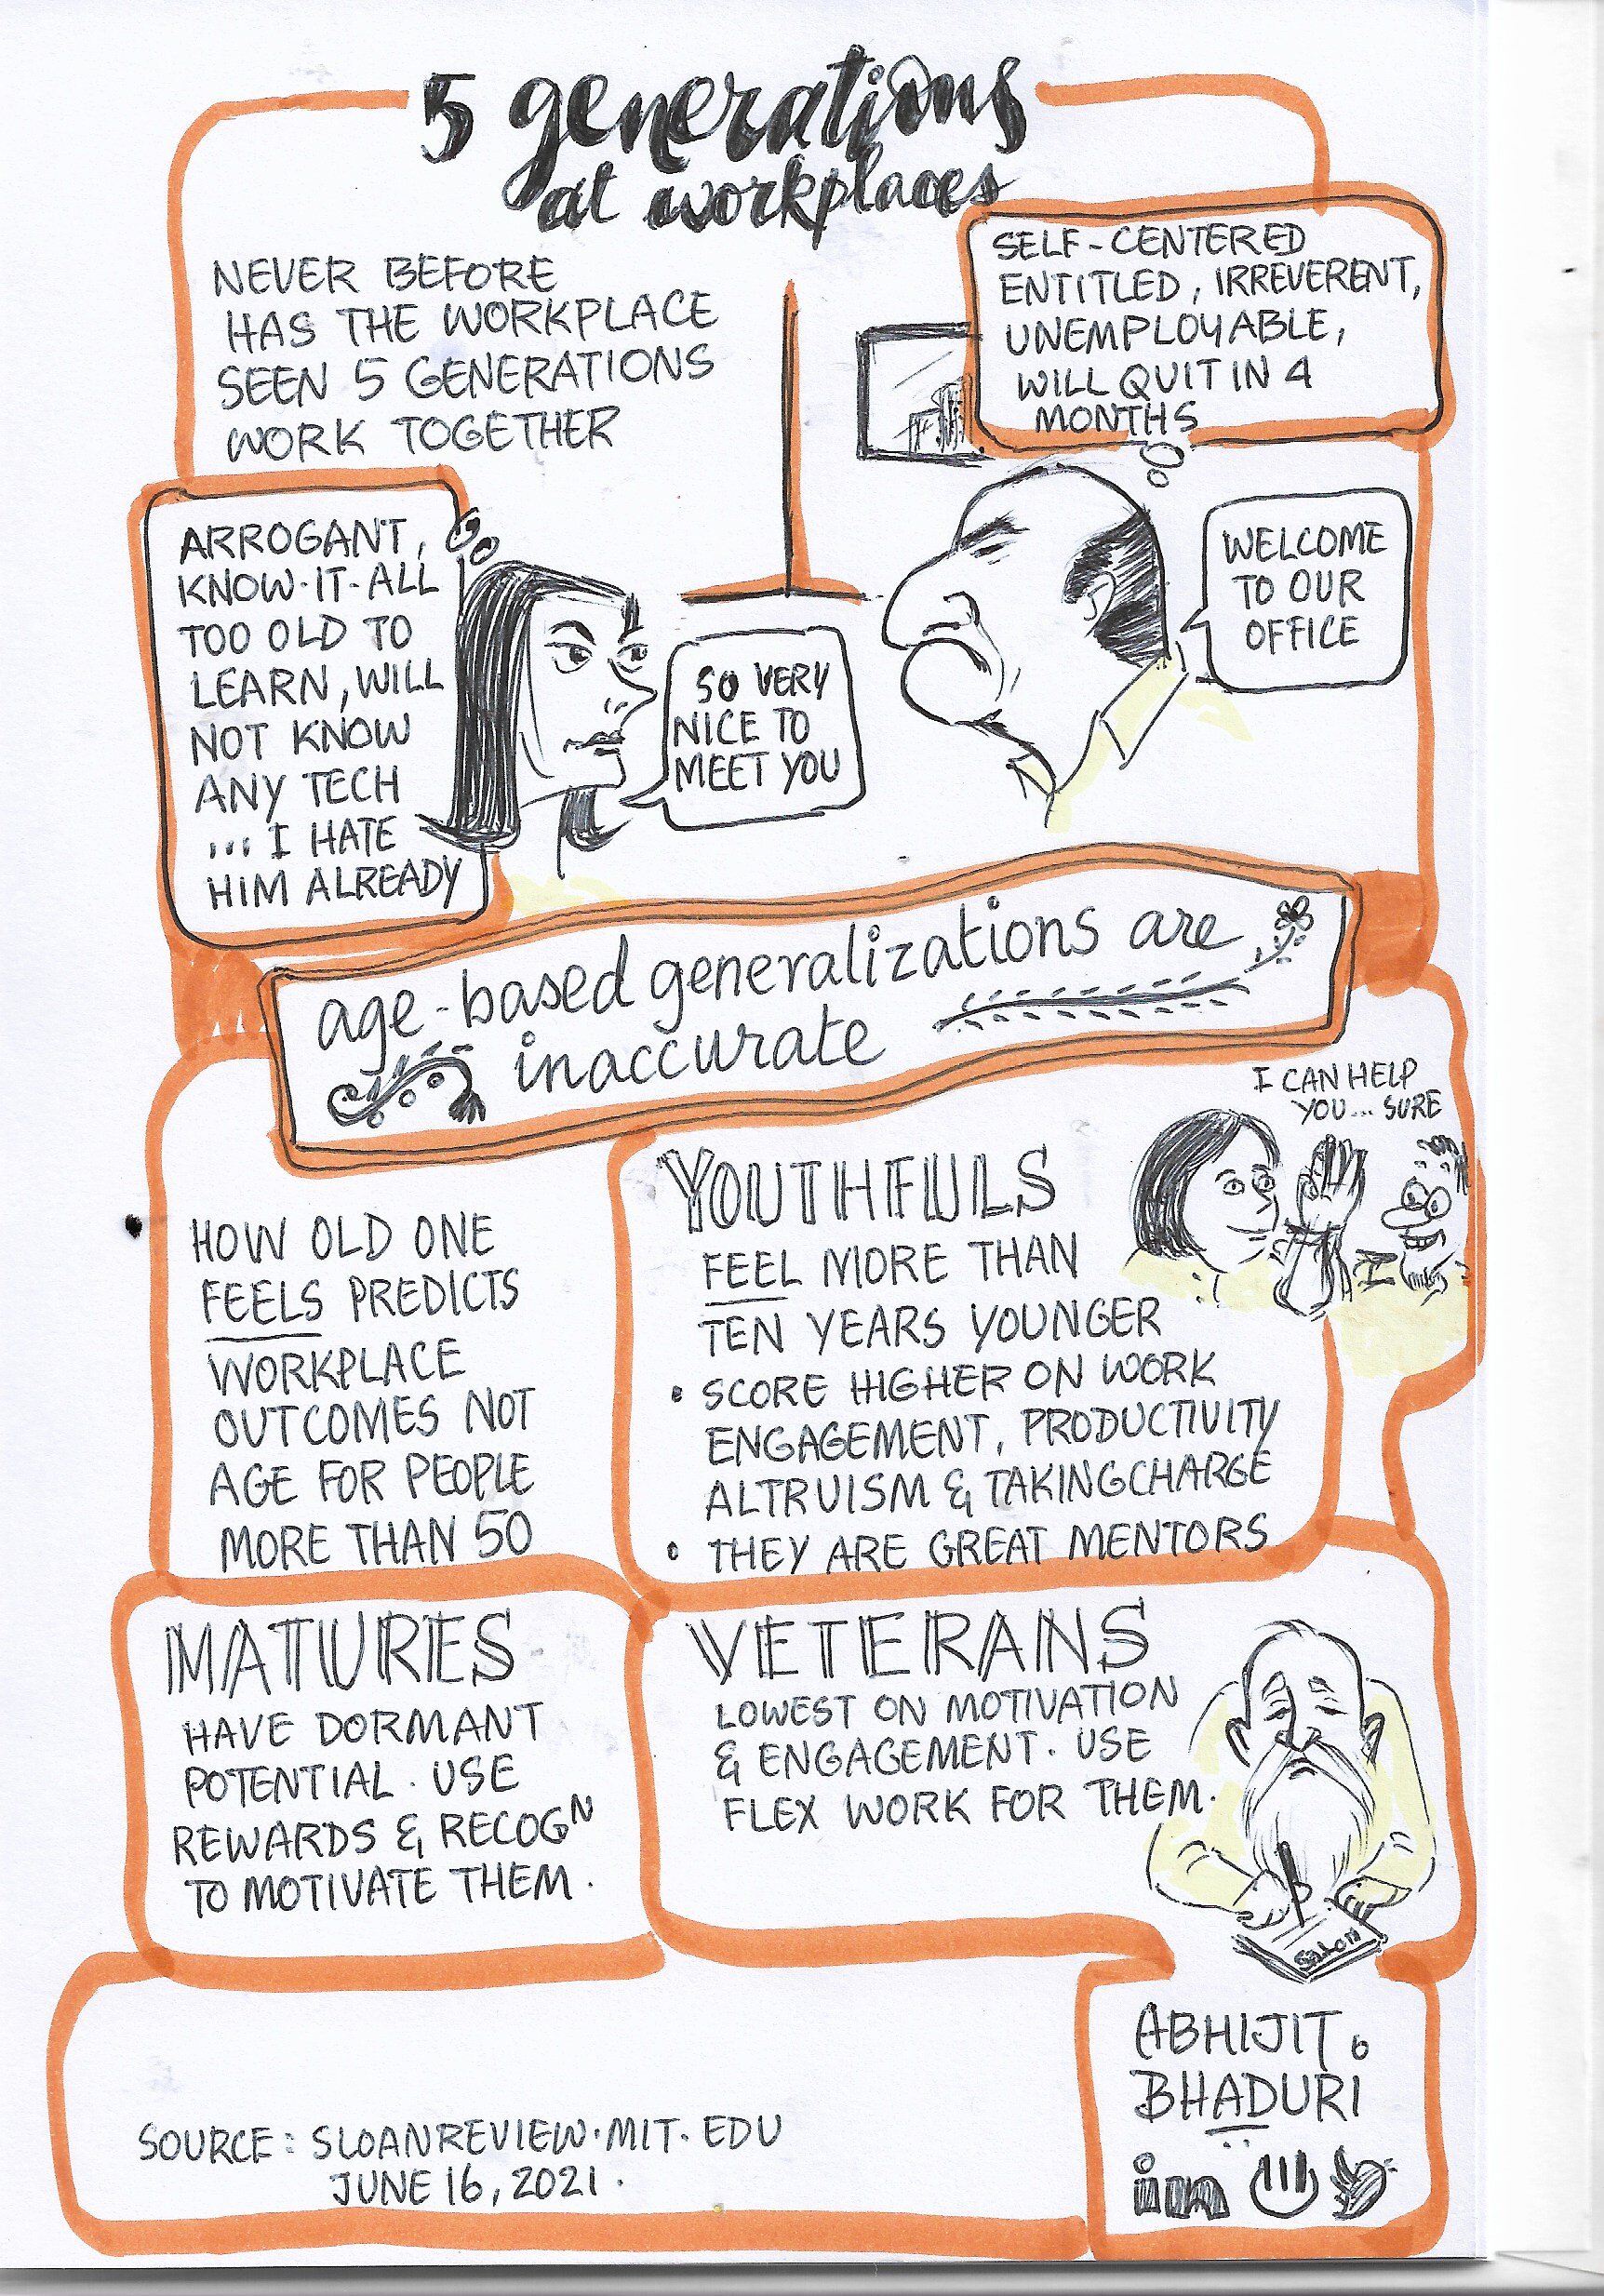 5 generations
at workplaces
NEVER BEFORE
HAS THE WORKPLACE
SEEN 5 GENERATIONS
WORK TOGETHER
SELF-CENTERED
ENTITLED, IRREVERENT,
UNEMPLOYABLE,
WILL QUIT IN 4
MONTHS
ARROGANT,
KNOW-IT-ALL
TOO OLD TO
LEARN, WILL
NOT KNOW
ANY TECH
... I HATE
HIM ALREADY
SO VERY
NICE TO
MEET YOU
WELCOME
TO OUR
OFFICE
age-based generalizations are
inaccurate
HOW OLD ONE
FEELS PREDICTS
WORKPLACE
OUTCOMES NOT
AGE FOR PEOPLE
MORE THAN 50
I CAN HELP
YOU... SURE
YOUTHFULS
FEEL MORE THAN
TEN YEARS YOUNGER
• SCORE HIGHER ON WORK
ENGAGEMENT, PRODUCTIVITY
ALTRUISM & TAKING CHARGE
• THEY ARE GREAT MENTORS
MATURES
HAVE DORMANT
POTENTIAL. USE
REWARDS & RECOGN
TO MOTIVATE THEM.
VETERANS
LOWEST ON MOTIVATION
& ENGAGEMENT. USE
FLEX WORK FOR THEM.
SOURCE: SLOANREVIEW.MIT.EDU
JUNE 16, 2021.
ABHIJIT
BHADURI
in